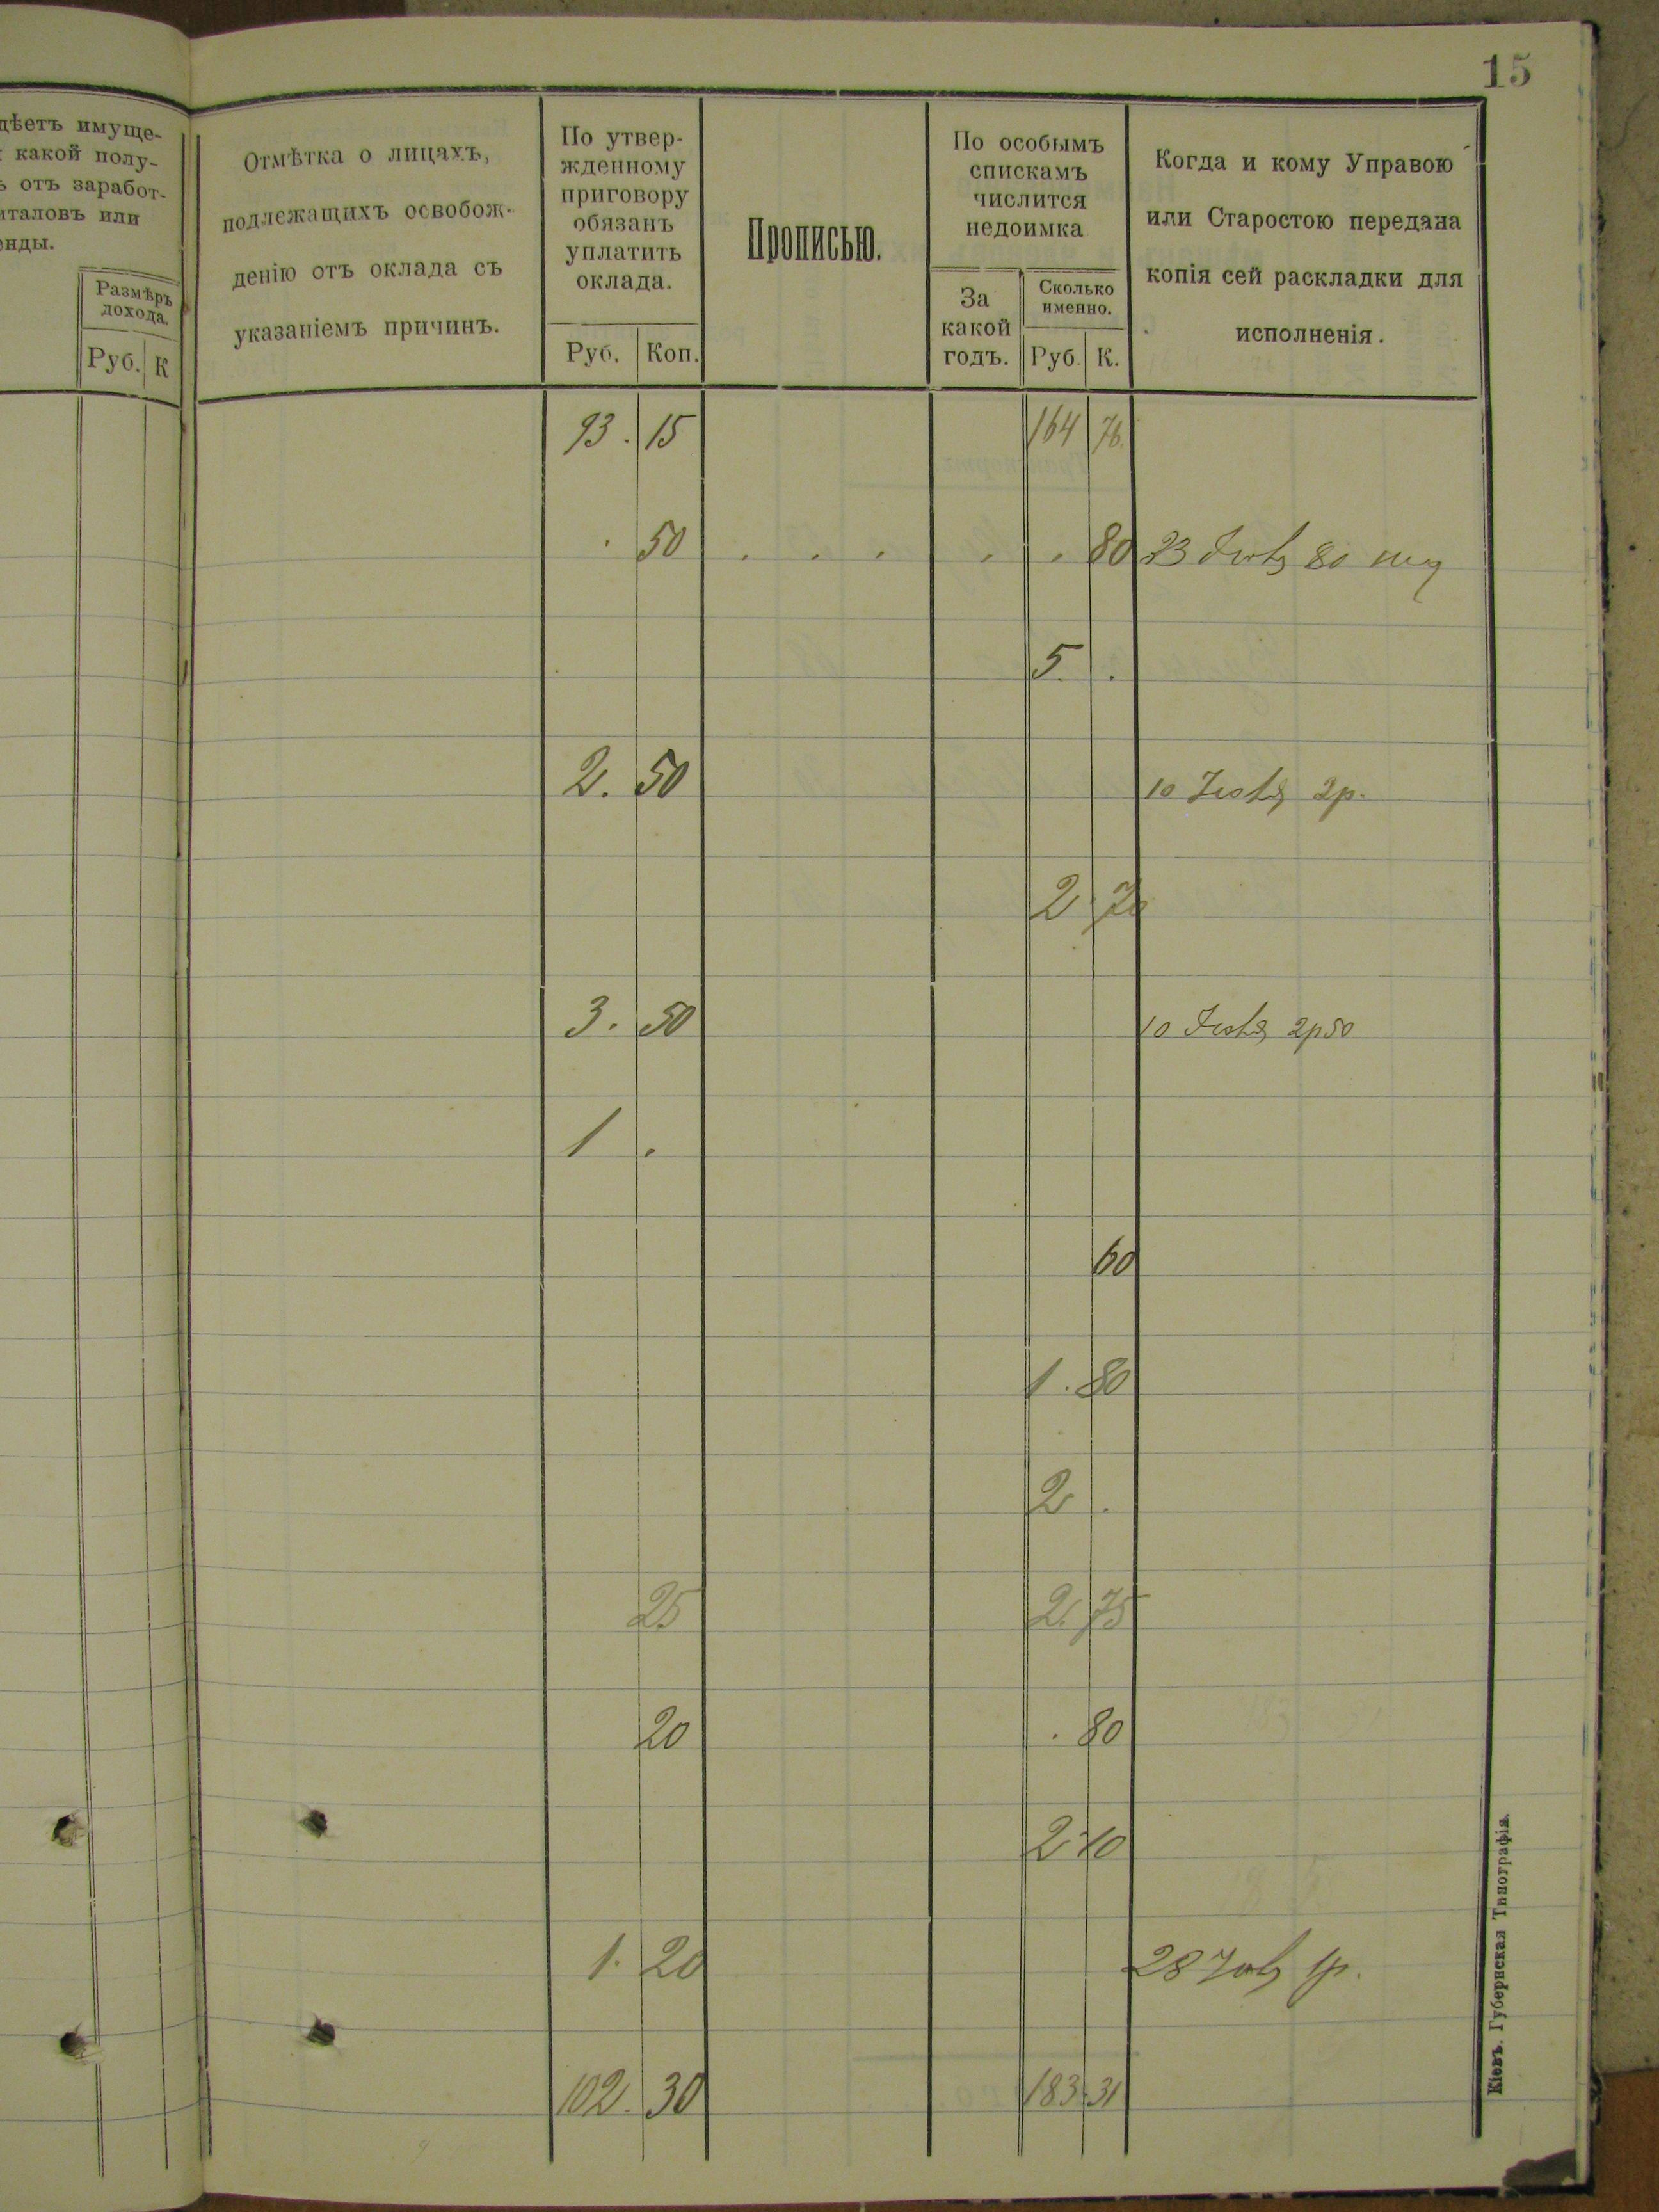 15
дѣетъ имуще-
какой полу-
отъ заработ-
италовъ или
енды.
Размѣръ
дохода.
Руб. К
Отмѣтка о лицахъ,
подлежащихъ освобож-
денію отъ оклада съ
указаніемъ причинъ.
По утвер-
жденному
приговору
обязанъ
уплатить
оклада.
Руб. Коп.
Прописью.
По особымъ
спискамъ
числится
недоимка
За
какой
годъ.
Сколько
именно.
Руб. К.
Когда и кому Управою
или Старостою передана
копія сей раскладки для
исполненія.
93. 15 164 76.
. 50 . . . . . 80 23 80
5. .
2. 50 10 2р.
2 70
3. 50 10 2р50
1 .
60
1. 80
2 .
25 2. 75
20 . 80
2 10
1. 20 28 1р.
102. 30 183. 31
Кіевъ. Губернская Типографія.